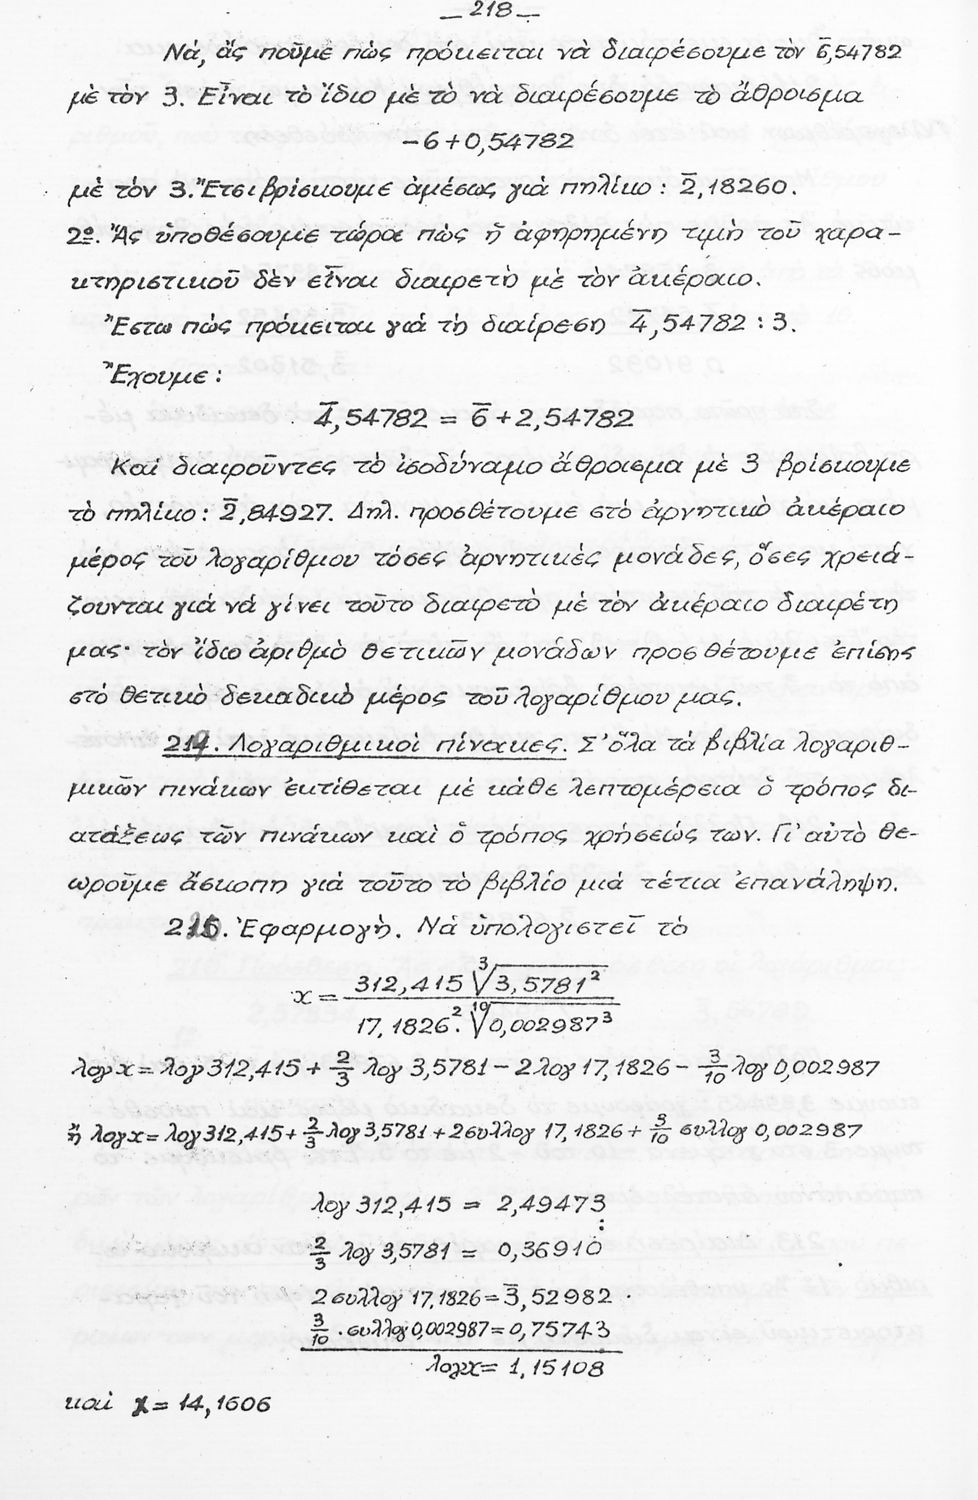 — 218 —
Νά, ἄς ποῦμε πὼς πρόκειται νὰ διαιρέσουμε τὸν 6̅,54782
μὲ τὸν 3. Εἶναι τὸ ἴδιο μὲ τὸ νὰ διαιρέσουμε τὸ ἄθροισμα
-6+0,54782
μὲ τὸν 3. Ἔτσι βρίσκουμε ἀμέσως γιὰ πηλίκο: 2̅,18260.
2º. Ἄς ὑποθέσουμε τώρα πὼς ἡ ἀφηρημένη τιμὴ τοῦ χαρα-
κτηριστικοῦ δὲν εἶναι διαιρετὴ μὲ τὸν ἀκέραιο.
Ἔστω πὼς πρόκειται γιὰ τὴ διαίρεση 4̅,54782 : 3.
Ἔχουμε:
4̅,54782 = 6̅+2,54782
Καὶ διαιροῦντες τὸ ἰσοδύναμο ἄθροισμα μὲ 3 βρίσκουμε
τὸ πηλίκο: 2̅,84927. Δηλ. προσθέτουμε στὸ ἀρνητικὸ ἀκέραιο
μέρος τοῦ λογαρίθμου τόσες ἀρνητικὲς μονάδες, ὅσες χρειά-
ζουνται γιὰ νὰ γίνει τοῦτο διαιρετὸ μὲ τὸν ἀκέραιο διαιρέτη
μας· τὸν ἴδιο ἀριθμὸ θετικῶν μονάδων προσθέτουμε ἐπίσης
στὸ θετικὸ δεκαδικὸ μέρος τοῦ λογαρίθμου μας.
219. Λογαριθμικοὶ πίνακες. Σ' ὅλα τὰ βιβλία λογαριθ-
μικῶν πινάκων ἐκτίθεται μὲ κάθε λεπτομέρεια ὁ τρόπος δι-
ατάξεως τῶν πινάκων καὶ ὁ τρόπος χρήσεώς των. Γι' αὐτὸ θε-
ωροῦμε ἄσκοπη γιὰ τοῦτο τὸ βιβλίο μιὰ τέτια ἐπανάληψη.
Ἐφαρμογὴ. Νὰ ὑπολογιστεῖ τὸ
x = 312,415 ∛3,5781² / 17,1826². ¹⁰√0,002987³
λογ x = λογ 312,415 + 2/3 λογ 3,5781 - 2λογ 17,1826 - 3/10 λογ 0,002987
ἢ λογx = λογ 312,415 + 2/3 λογ 3,5781 + 2συλλογ 17,1826 + 3/10 συλλογ 0,002987
λογ 312,415 = 2,49473
2/3 λογ 3,5781 = 0,36910
2συλλογ 17,1826 = 3̅,52982
3/10 · συλλογ 0,002987 = 0,75743
λογx = 1,15108
καὶ x = 14,1606